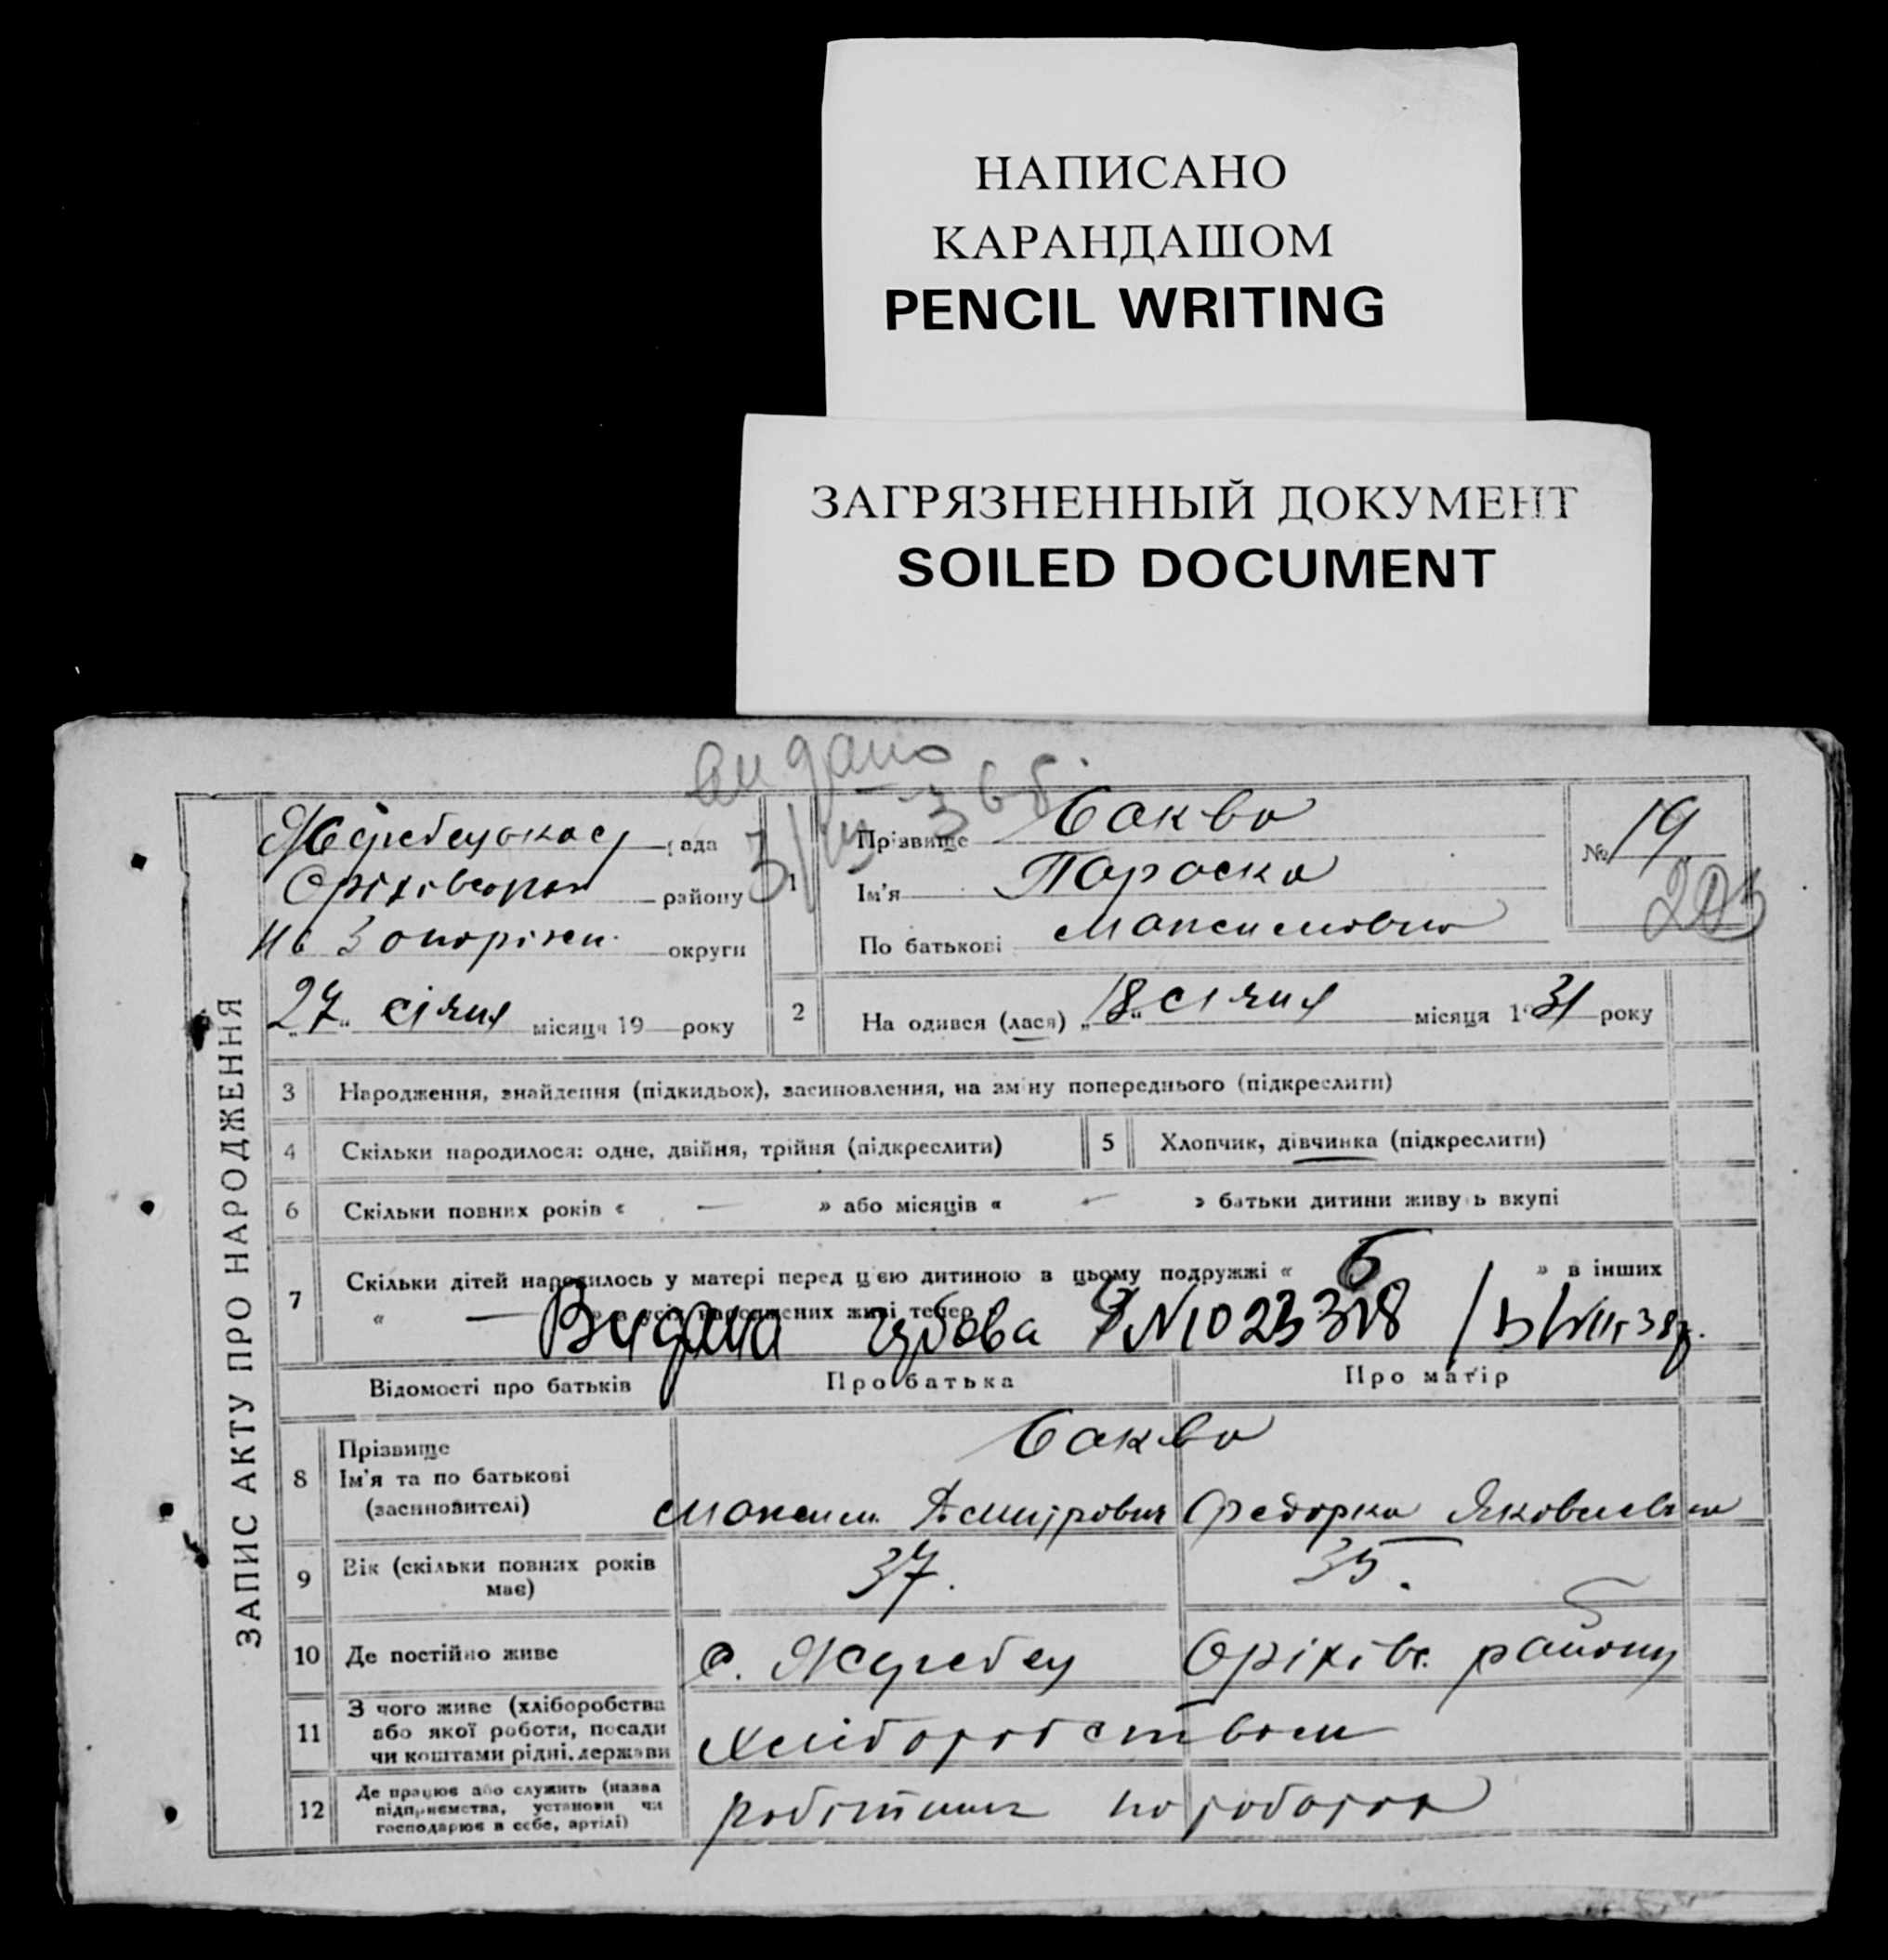 НАПИСАНО
КАРАНДАШОМ
PENCIL WRITING
ЗАГРЯЗНЕННЫЙ ДОКУМЕНТ
SOILED DOCUMENT
видано
ЗАПИС АКТУ ПРО НАРОДЖЕННЯ
рада
району
округи
27 січня місяця 19 року
1
Прізвище Саква
Ім'я Параска
По батькові Максимовна
№ 19
203
2
На одився (лася) „18“ січня місяця 1931 року
3 Народження, знайдення (підкидьок), засиновлення, на зміну попереднього (підкреслити)
4 Скільки народилося: одне, двійня, трійня (підкреслити) 5 Хлопчик, дівчинка (підкреслити)
6 Скільки повних років « — » або місяців « — » батьки дитини живуть вкупі
7 Скільки дітей народилось у матері перед цією дитиною в цьому подружжі « 6 » в інших
« — живі тепер
Видана
Відомості про батьків Про батька Про матір
8 Прізвище Саква
Ім'я та по батькові
(засиновителі) Максим Дмитрович Федорка Яковлевна
9 Вік (скільки повних років має) 37. 35.
10 Де постійно живе с. Жеребец Оріхівс. району
11 З чого живе (хліборобства
або якої роботи, посади
чи коштами рідні, держави хліборобством
12 Де працює або служить (назва
підприємства, установи чи
господарює в себе, артілі) робітник